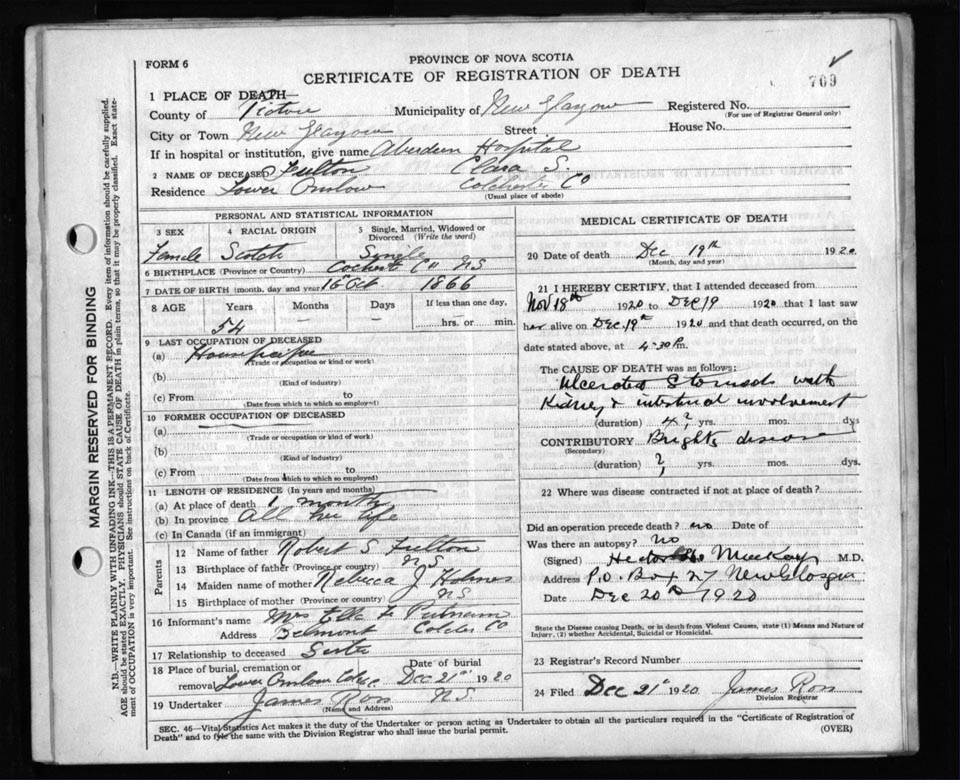 FORM 6
PROVINCE OF NOVA SCOTIA
CERTIFICATE OF REGISTRATION OF DEATH
709
1 PLACE OF DEATH—
County of Pictou Municipality of New Glasgow Registered No.
(For use of Registrar General only)
City or Town New Glasgow Street House No.
If in hospital or institution, give name Aberdeen Hospital
2 NAME OF DECEASED Fulton Clara S.
Residence Lower Onslow Colchester Co
(Usual place of abode)
PERSONAL AND STATISTICAL INFORMATION
3 SEX 4 RACIAL ORIGIN 5 Single, Married, Widowed or Divorced (Write the word)
Female Scotch Single
6 BIRTHPLACE (Province or Country) Co N.S
7 DATE OF BIRTH (month, day and year) 16 Oct 1866
8 AGE Years Months Days If less than one day,
54 — — hrs. or min.
9 LAST OCCUPATION OF DECEASED
(a)
(Trade or occupation or kind or work)
(b)
(Kind of industry)
(c) From to
(Date from which to which so employed)
10 FORMER OCCUPATION OF DECEASED
(a)
(Trade or occupation or kind or work)
(b)
(Kind of industry)
(c) From to
(Date from which to which so employed)
11 LENGTH OF RESIDENCE (In years and months)
(a) At place of death 1 month
(b) In province All her life
(c) In Canada (if an immigrant)
Parents
12 Name of father Robert S Fulton
13 Birthplace of father (Province or country) N.S
14 Maiden name of mother Rebecca J Holmes
15 Birthplace of mother (Province or country) N.S
16 Informant's name Mrs Etta F Putnam
Address Belmont Colches Co
17 Relationship to deceased Sister
18 Place of burial, cremation or Date of burial
removal Lower Onslow Dec 21st 1920
19 Undertaker James Ross N.S.
(Name and Address)
MEDICAL CERTIFICATE OF DEATH
20 Date of death Dec 19th 1920
(Month, day and year)
21 I HEREBY CERTIFY, that I attended deceased from
Nov 18th 1920 to Dec 19 1920 that I last saw
her alive on Dec 19th 1920 and that death occurred, on the
date stated above, at 4-30 P.m.
The CAUSE OF DEATH was as follows:
Ulcerated Stomach with
Kidney & intestinal involvement
(duration) 4? yrs. mos. dys
CONTRIBUTORY Brights disease
(Secondary)
(duration) ? yrs. mos. dys.
22 Where was disease contracted if not at place of death?
Did an operation precede death? no Date of
Was there an autopsy? no
(Signed) Hector MacKay M.D.
Address P.O. Box 27 New Glasgow
Date Dec 20th 1920
State the Disease causing Death, or in death from Violent Causes, state (1) Means and Nature of
Injury, (2) whether Accidental, Suicidal or Homicidal.
23 Registrar's Record Number
24 Filed Dec 21st 1920 James Ross
Division Registrar
SEC. 46—Vital Statistics Act makes it the duty of the Undertaker or person acting as Undertaker to obtain all the particulars required in the "Certificate of Registration of
Death" and to file the same with the Division Registrar who shall issue the burial permit. (OVER)
MARGIN RESERVED FOR BINDING
N.B.—WRITE PLAINLY WITH UNFADING INK—THIS IS A PERMANENT RECORD. Every item of information should be carefully supplied.
AGE should be stated EXACTLY. PHYSICIANS should STATE CAUSE OF DEATH in plain terms, so that it may be properly classified. Exact state-
ment of OCCUPATION is very important. See instructions on back of Certificate.